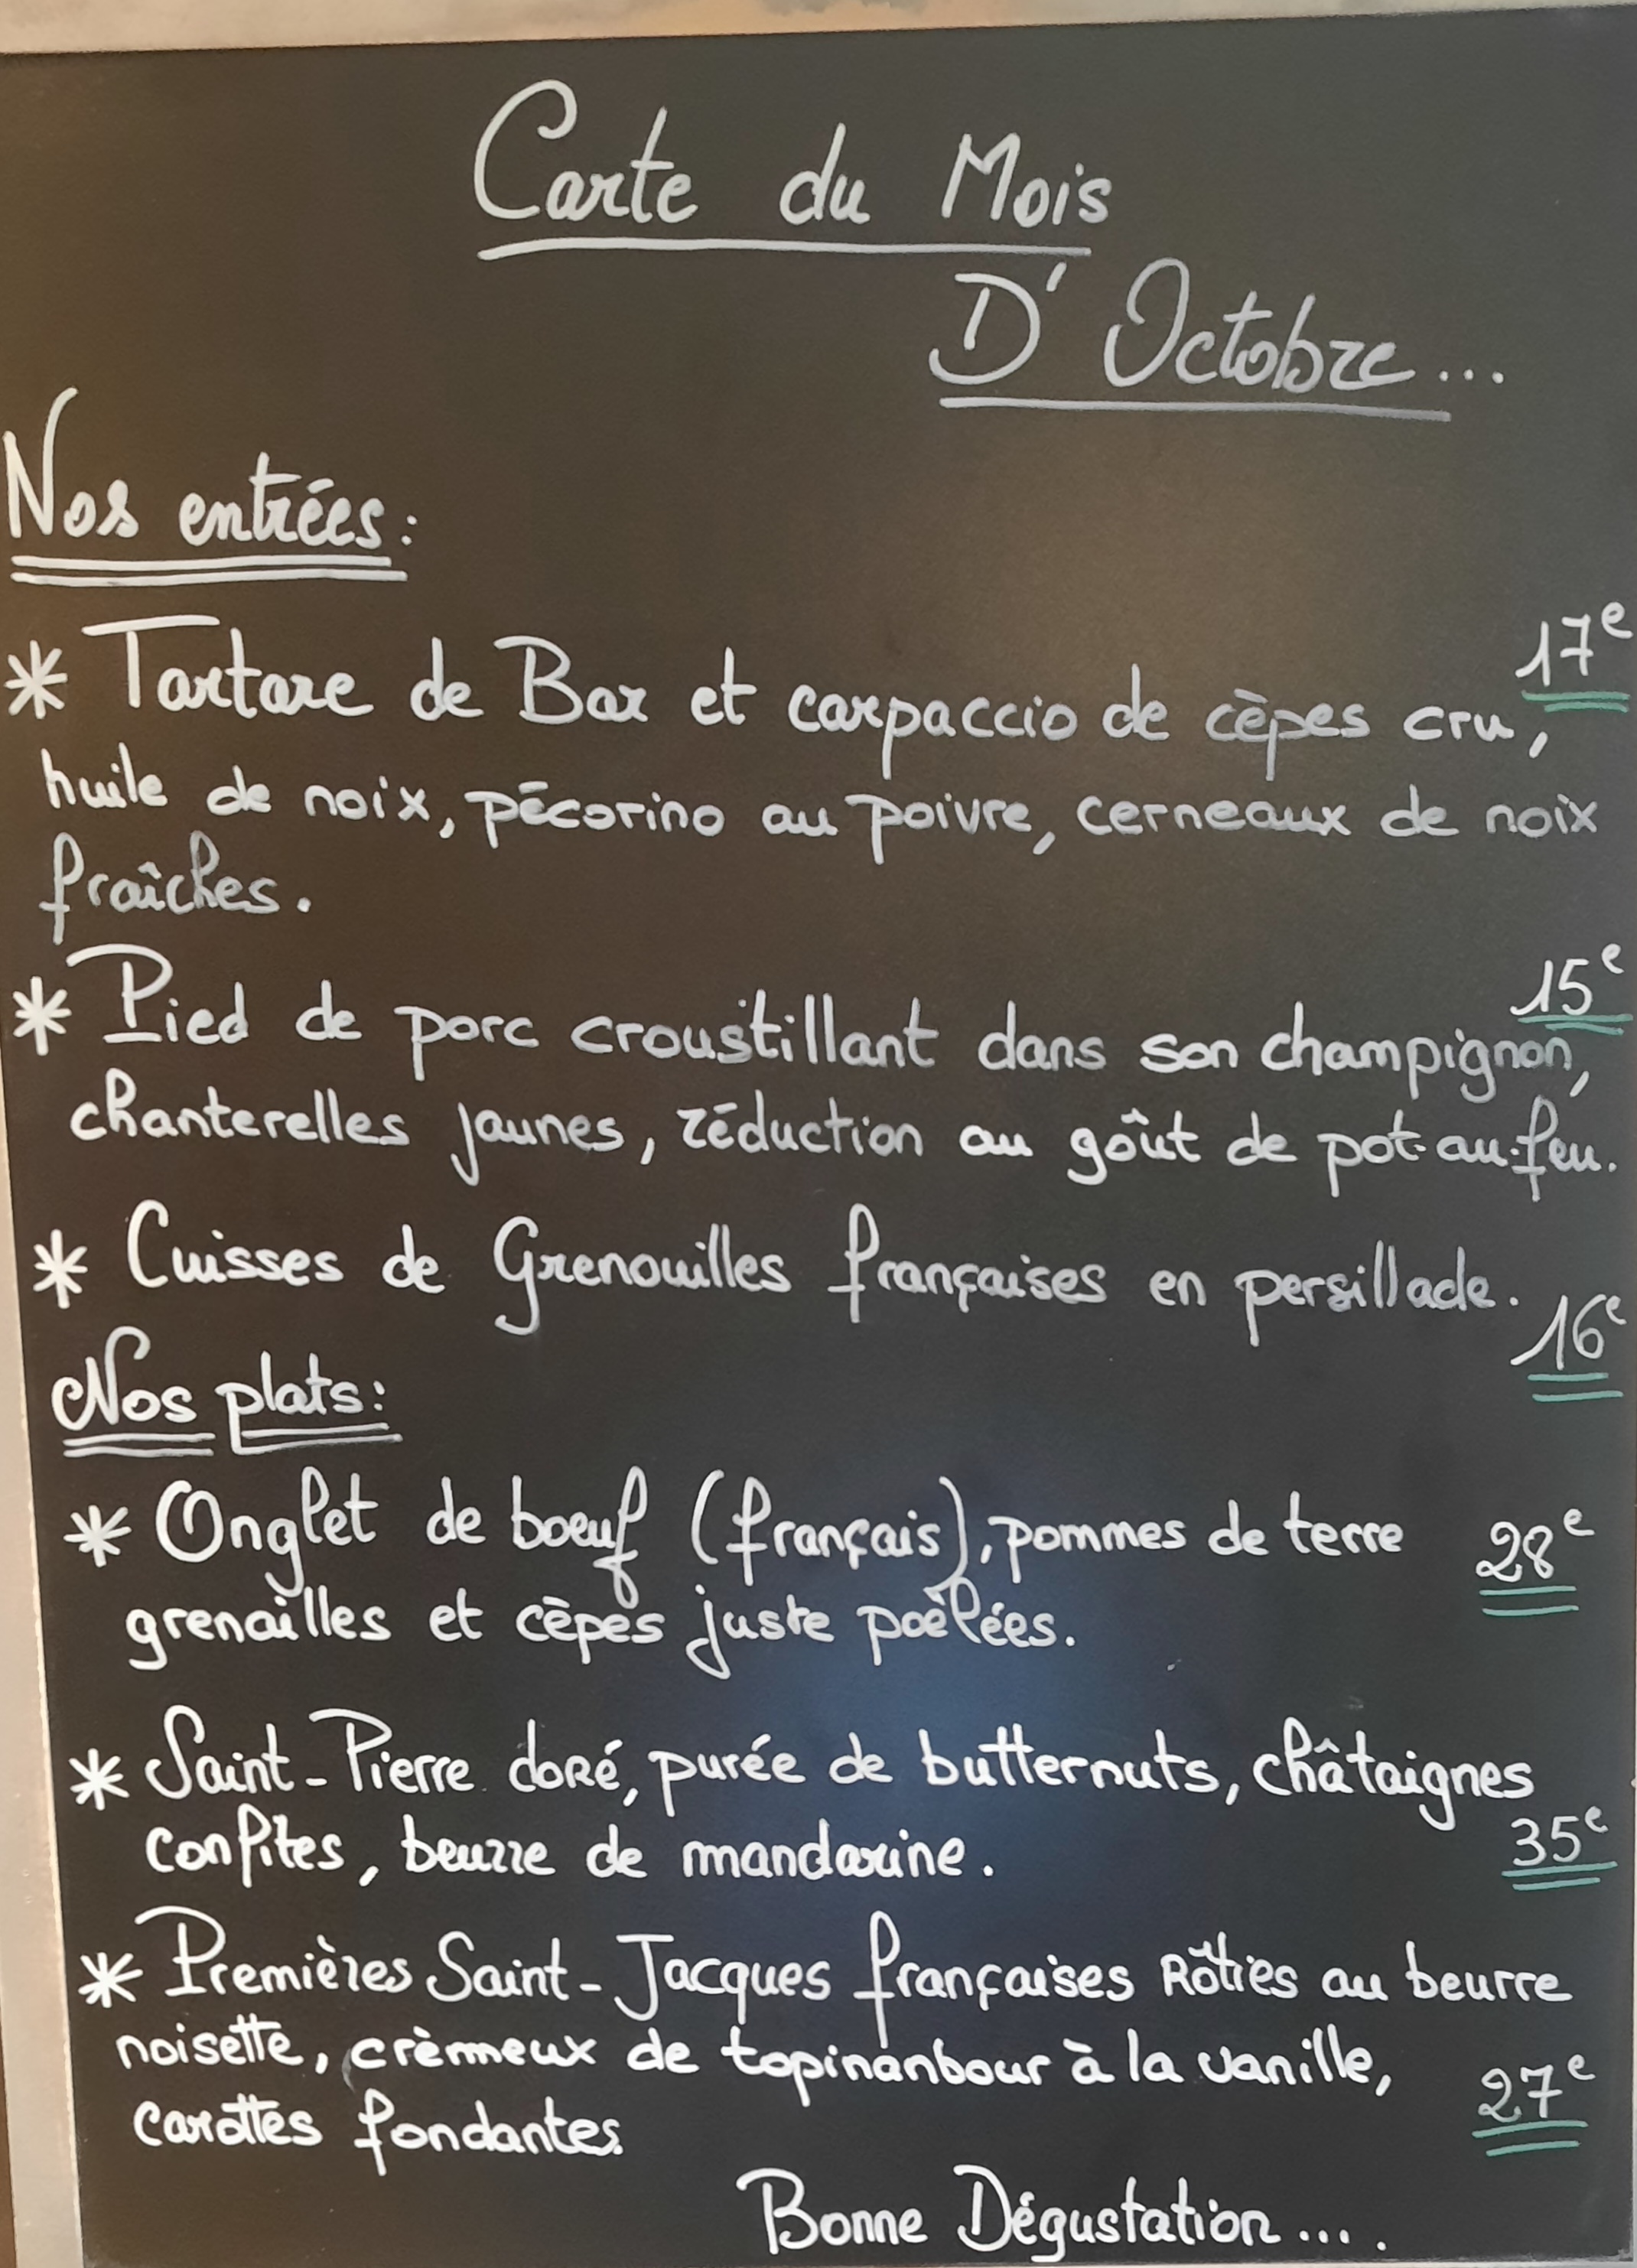 Carte du Mois
D'Octobre...
Nos entrées:
17e
* Tartare de Bar et carpaccio de cèpes cru,
huile de noix, pécorino au poivre, cerneaux de noix
fraîches.
15e
* Pied de porc croustillant dans son champignon,
chanterelles jaunes, réduction au goût de pot-au-feu.
* Cuisses de Grenouilles françaises en persillade.
16e
Nos plats:
* Onglet de boeuf (français), pommes de terre 28e
grenailles et cèpes juste poêlées.
* Saint-Pierre doré, purée de butternuts, châtaignes
confites, beurre de mandarine. 35e
* Premières Saint-Jacques françaises Rôties au beurre
noisette, crèmeux de topinanbour à la vanille, 27e
carottes fondantes.
Bonne Dégustation....